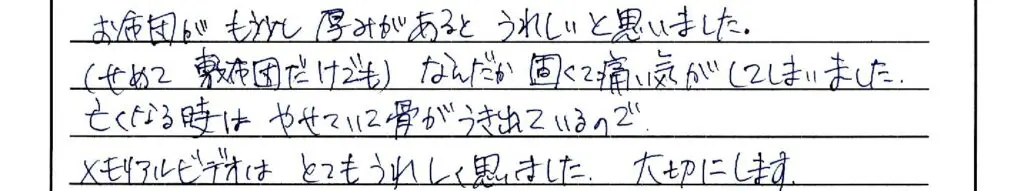 お布団がもう少し厚みがあるとうれしいと思いました。
(せめて敷布団だけでも) なんだか固くて痛い気がしてしまいました.
亡くなる時はやせていて骨がうき出ているので
メモリアルビデオはとてもうれしく思いました. 大切にします.